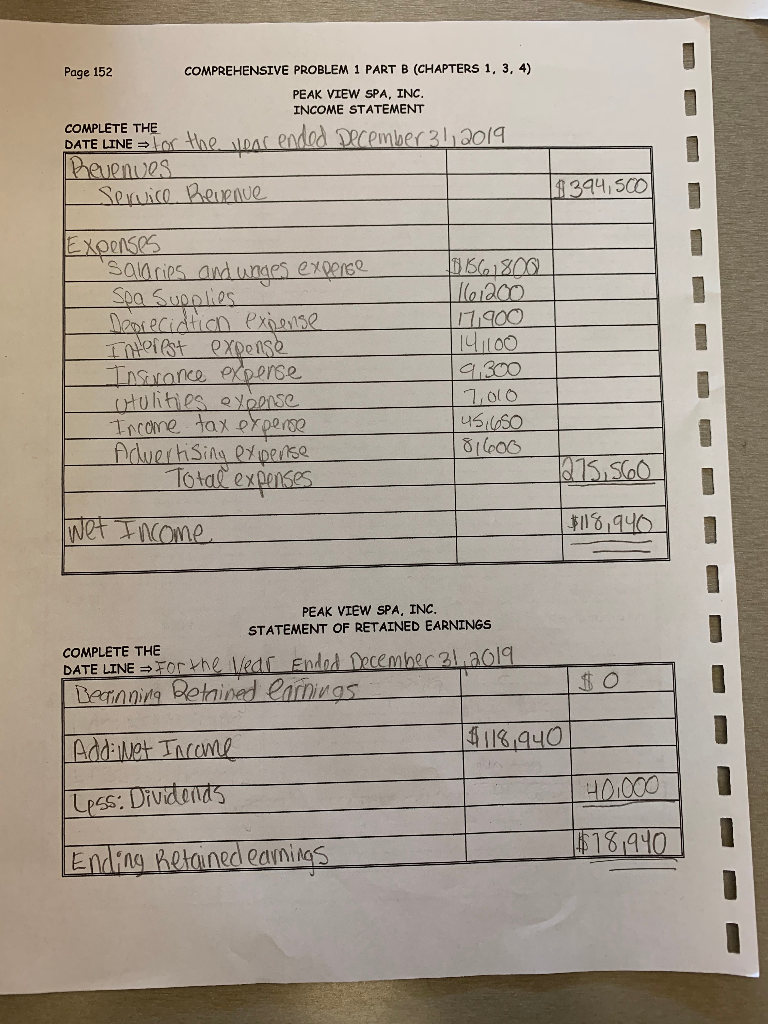 Page 152 COMPREHENSIVE PROBLEM 1 PART B (CHAPTERS 1, 3, 4)
PEAK VIEW SPA, INC.
INCOME STATEMENT
COMPLETE THE
DATE LINE ⇒ for the year ended December 31, 2019
Revenues
Service Revenue $394,500
Expenses
Salaries and wages expense $156,800
Spa Supplies 16,200
Depreciation expense 17,900
Interest expense 14,100
Insurance expense 9,300
Utilities expense 7,010
Income tax expense 45,650
Advertising expense 8,600
Total expenses 275,560
Net Income $118,940
PEAK VIEW SPA, INC.
STATEMENT OF RETAINED EARNINGS
COMPLETE THE
DATE LINE ⇒ For the Year Ended December 31, 2019
Beginning Retained Earnings $0
Add: Net Income $118,940
Less: Dividends 40,000
Ending Retained earnings $78,940